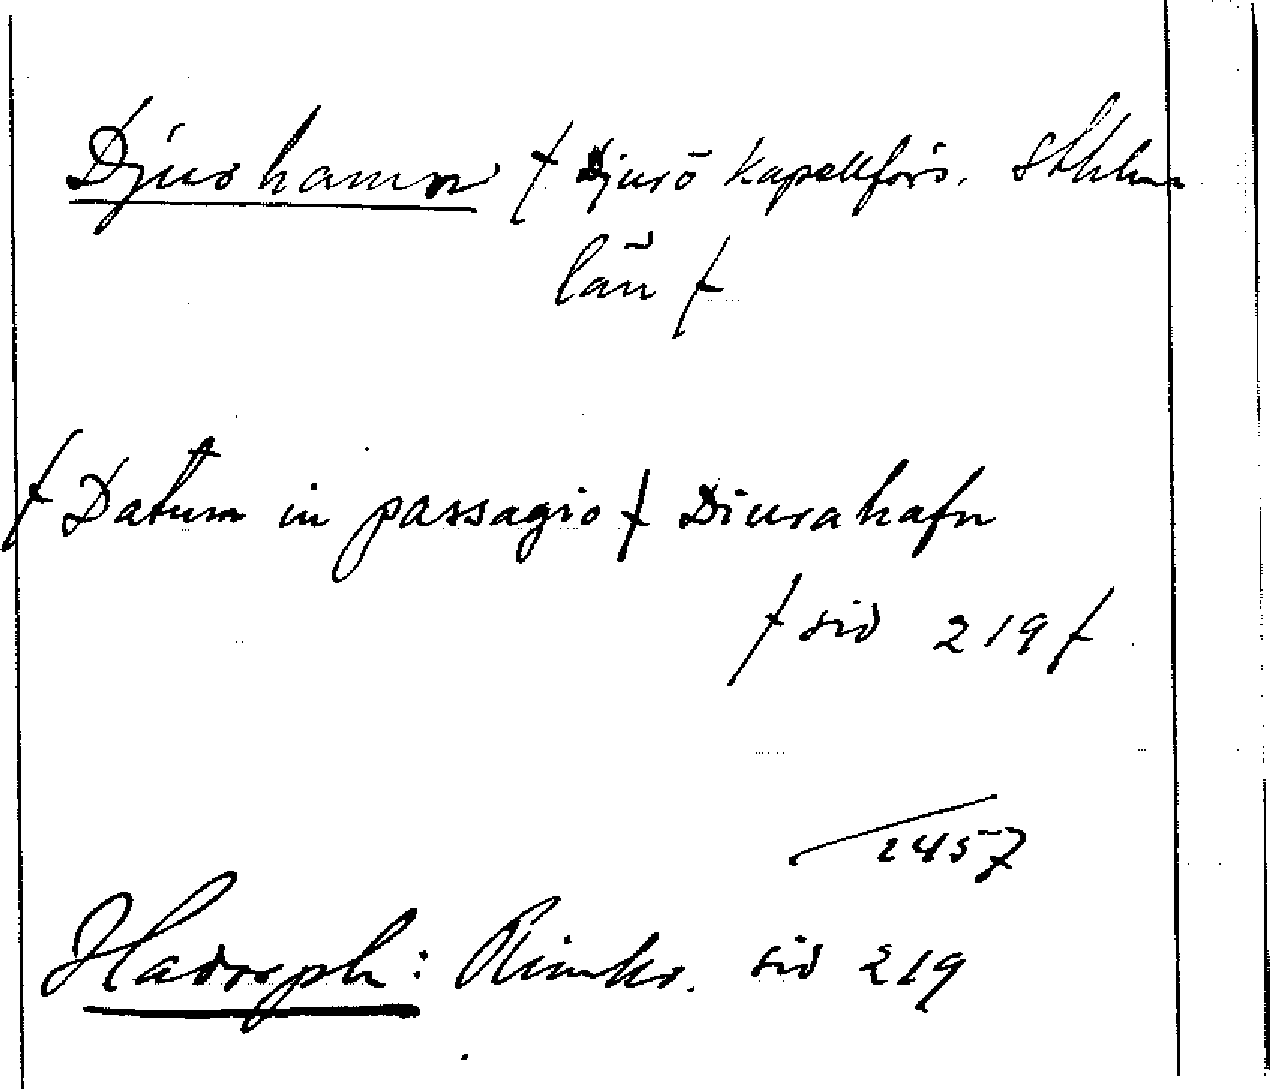 Djurhamn [Djurö kapellförs. Sthlms
län]
[Datum in passagio] Diurahafn
[sid 219]
1457
Hadorph: Rimkr. sid 219